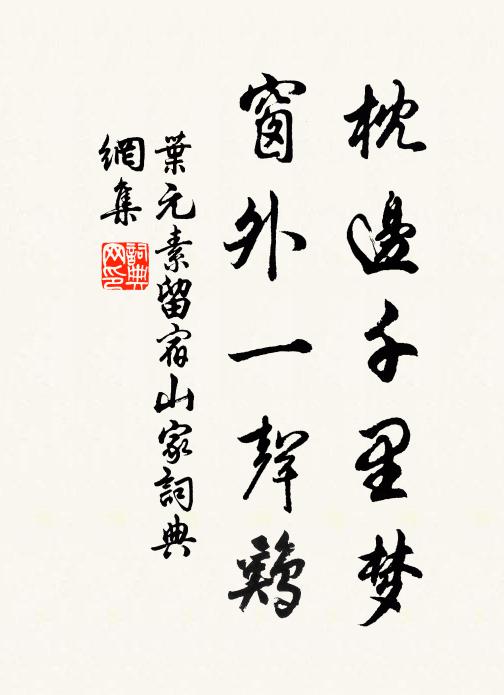 枕邊千里梦
窗外一聲鷄
葉元素留宿山家詞典
網集
詞典
网印